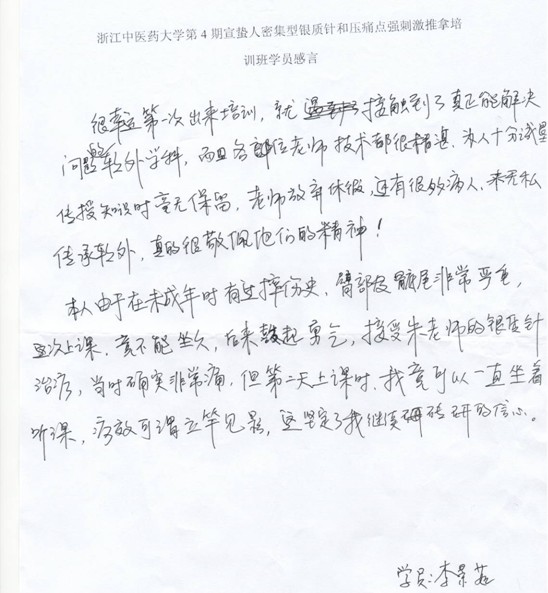 浙江中医药大学第4期宣蛰人密集型银质针和压痛点强刺激推拿培
训班学员感言
很幸运第一次出来培训，就接触到了真正能解决
问题软外学科，而且各部位老师技术都很精湛，为人十分诚恳
传授知识时毫无保留，老师放弃休假，还有很多病人，来无私
传承软外，真的很敬佩他们的精神！
本人由于在未成年时有过摔伤史，臀部及骶尾非常严重，
这次上课，竟不能坐久，后来鼓起勇气，接受朱老师的银质针
治疗，当时确实非常痛，但第二天上课时，我竟可以一直坐着
听课，疗效可谓立竿见影，这坚定了我继续研的信心。
学员：李景